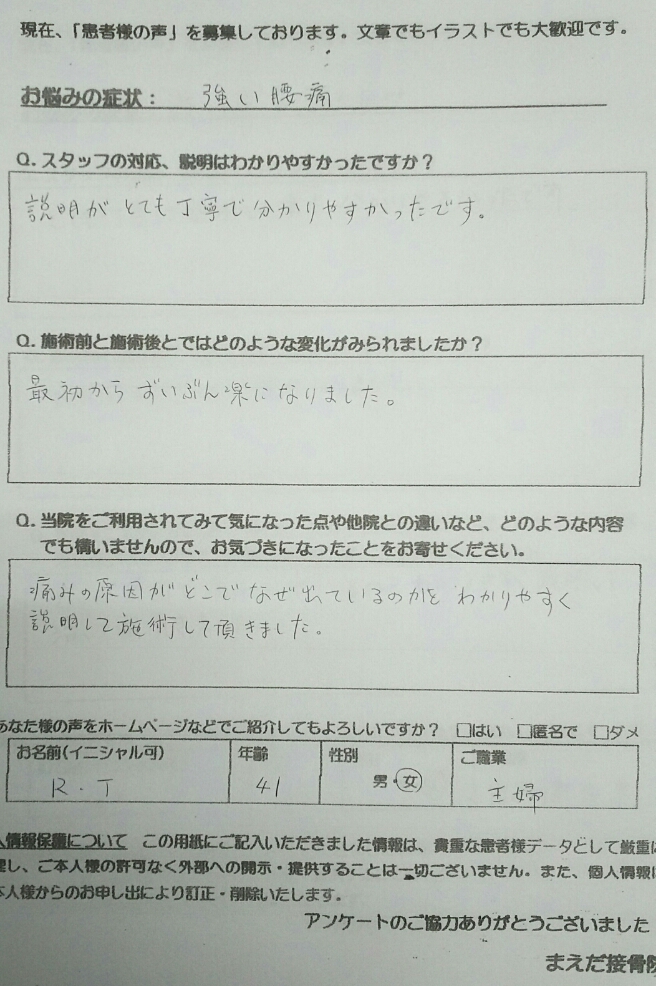 現在、「患者様の声」を募集しております。文章でもイラストでも大歓迎です。
お悩みの症状： 強い腰痛
Q. スタッフの対応、説明はわかりやすかったですか？
説明がとても丁寧で分かりやすかったです。
Q. 施術前と施術後とではどのような変化がみられましたか？
最初からずいぶん楽になりました。
Q. 当院をご利用されてみて気になった点や他院との違いなど、どのような内容
でも構いませんので、お気づきになったことをお寄せください。
痛みの原因がどこでなぜ出ているのかを わかりやすく
説明して施術して頂きました。
あなた様の声をホームページなどでご紹介してもよろしいですか？ □はい □匿名で □ダメ
お名前（イニシャル可） 年齢 性別 ご職業
R．T 41 男・女 主婦
人情報保護について この用紙にご記入いただきました情報は、貴重な患者様データとして厳重に
理し、ご本人様の許可なく外部への開示・提供することは一切ございません。また、個人情報は
本人様からのお申し出により訂正・削除いたします。
アンケートのご協力ありがとうございました
まえだ接骨院